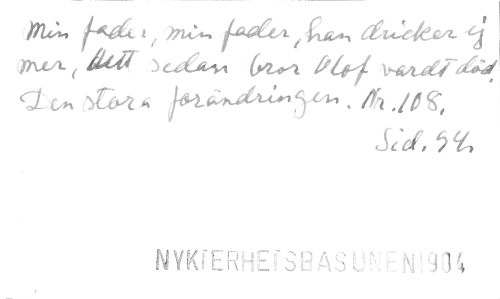 Min fader, min fader, han dricker ej
mer, sedan bror Olof vardt död.
Den stora förändringen. Nr. 108.
Sid. 94.
NYKTERHETSBASUNEN 1904